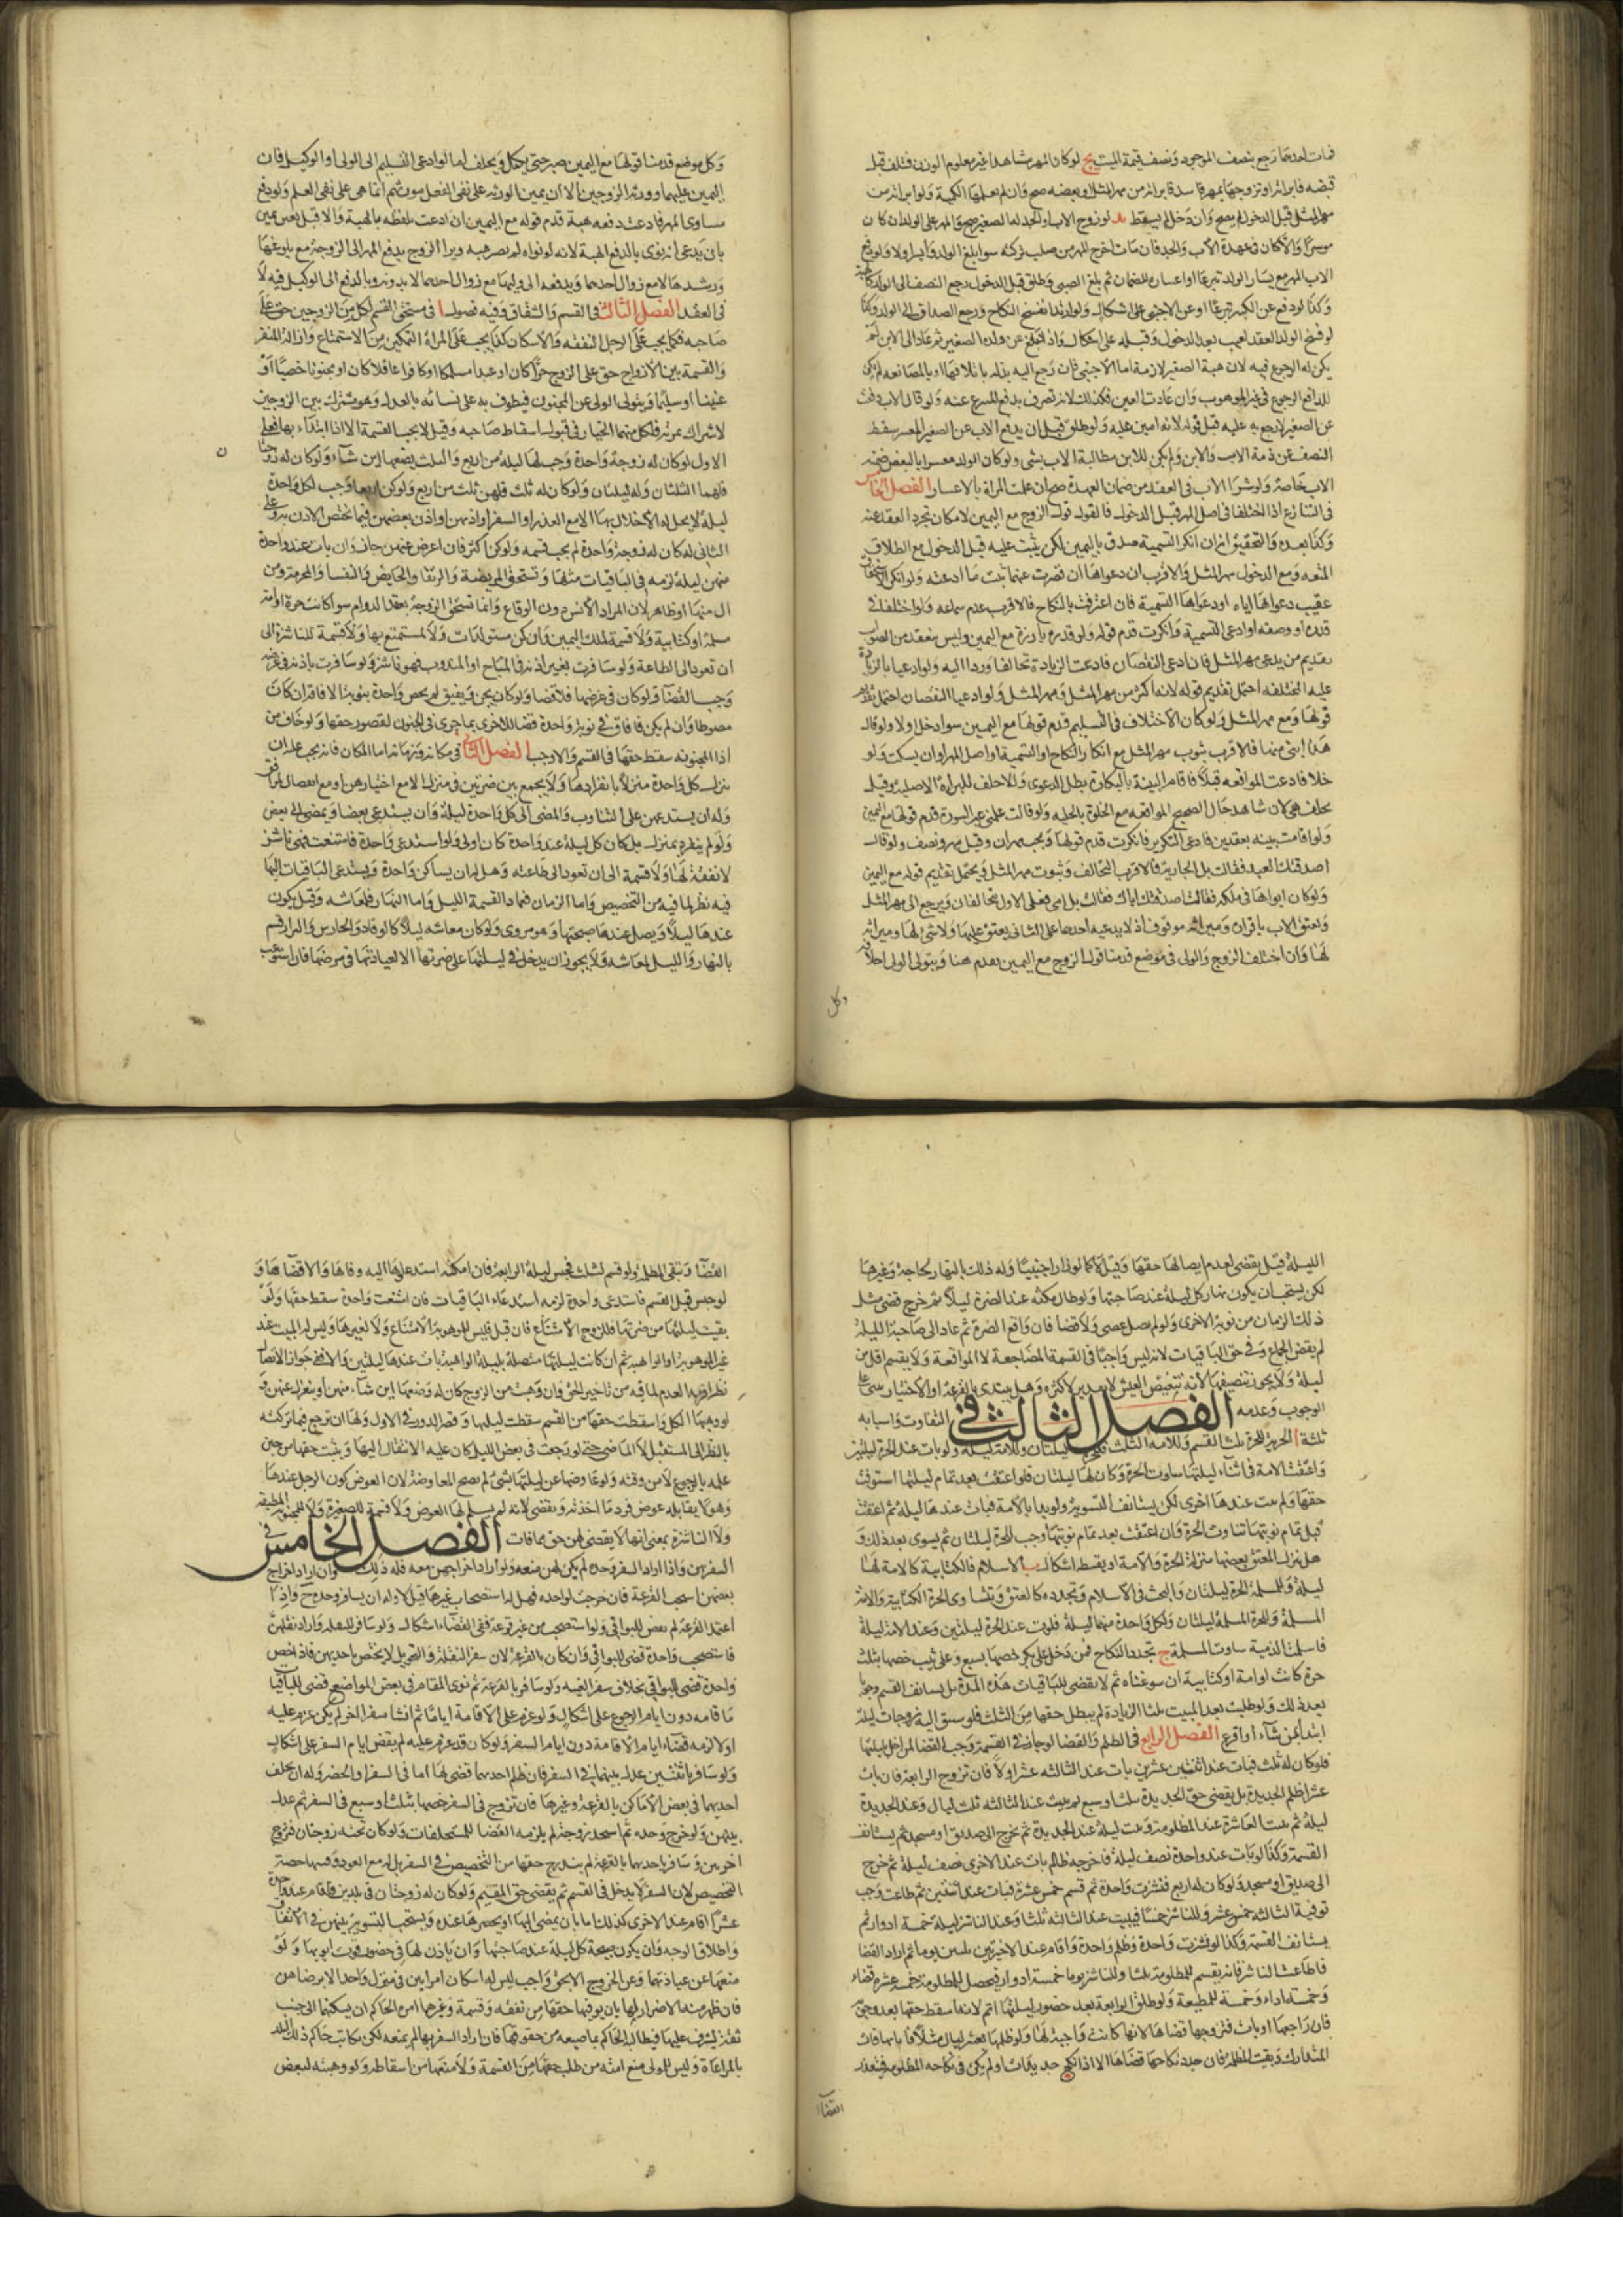 فمات احدهما رجع بنصف الموجود ونصف قيمة الميت يج لو كان المهر مشاهدا غير معلوم الوزن فتلف قبل
قبضه فابراته او تزوجها بمهر فاسد فابراته من مهر المثل او بعضه صح وان لم يعلما الكمية ولو ابراته من
مهر المثل قبل الدخول لم يصح وان دخل لم يسقط يد لو زوج الاب او الجد له الصغير صح والمهر على الولد ان كان
موسرا والا كان في عهدة الاب والجد فان مات اخرج المهر من صلب تركته سوا بلغ الولد وايسر اولا ولو دفع
الاب المهر مع يسار الولد تبرعا او اعساره للضمان ثم بلغ الصبي وطلق قبل الدخول رجع النصف الى الولد كالهبة
وكذا لو دفع عن الكبير تبرعا او عن الاجنبي على اشكال ولو ارتد انفسخ النكاح ورجع الصداق الى الولد وكذا
لو فسخ الولد العقد لعيب بعد الدخول
يكن له الرجوع فيه لان هبة الصغير لازمة اما الاجنبي فان رجع اليه
للدافع الرجوع في غير الموهوب وان عادت العين فكذلك لانه تصرف بدفع المتبرع عنه ولو قال الاب دفعت
عن الصغير لارجع به عليه قبل قوله لانه امين عليه ولو طلق قبل ان يدفع الاب عن الصغير المعسر سقط
النصف عن ذمة الاب والابن ولم يكن للابن مطالبة الاب بشي ولو كان الولد معسرا بالبعض ضمنه
الاب خاصة ولو شرا الاب في العقد من ضمان العهدة صح ان علمت المراة بالاعسار الفصل الخامس
في التنازع اذا اختلفا في اصل المهر قبل الدخول فالقول قول الزوج مع اليمين لامكان تجرد العقد عنه
وكذا بعده والتحقيق انه ان انكر التسمية صدق باليمين لكن يثبت عليه قبل الدخول مع الطلاق
المتعه ومع الدخول مهر المثل والاقرب ان دعواها ان قصرت عنهما ثبت ما ادعته ولو انكر الاستحقاق
عقيب دعواها اياه او دعواها التسمية فان اعترف بالنكاح فالاقرب عدم سماعه ولو اختلفا في
قدره او وصفه او ادعى التسمية وانكرت قدم قوله ولو قدره بارزة مع اليمين وليس ببعيد من الصواب
تقديم من يدعي مهر المثل فان ادعى النقصان فادعت الزيادة تحالفا وردا اليه ولو ادعيا بالزيادة
عليه المختلفه احتمل تقديم قوله لانه اكثر من مهر المثل ومهر المثل ولو ادعيا النقصان احتمل تقديم
قولها ومع مهر المثل ولو كان الاختلاف في التسليم قدم قولها مع اليمين سوا دخل اولا ولو قال
هذا ابني منها فالاقرب ثبوت مهر المثل مع انكار النكاح او التسمية او اصل المهر او ان يسكت ولو
خلا فادعت المواقعه قبلا فاقام البينة بالبكارة بطل الدعوى والا حلف للبراة الاصلية وقيل
يحلف هي لان شاهد حال الصحيح المواقعه مع الخلوة بالحليه ولو قالت علمني غير السورة قدم قولها مع اليمين
ولو اقامت بينه بعقدين فادعى التكرير فانكرت قدم قولها ويجب مهران وقيل مهر ونصف ولو قال
اصدقتك العبد فقالت بل الجارية فالاقرب التحالف وثبوت مهر المثل ويحتمل تقديم قوله مع اليمين
ولو كان ابواها في ملكه فقال اصدقتك اباك فقالت بل امي فعلى الاول يتحالفان ويرجع الى مهر المثل
وتعتق الاب باقراره وميراثه موقوف اذ لا يدعيه احدهما وعلى الثاني يعتق عليها ولا شئ لها وميراثه
لها وان اختلف الزوج والولي في موضع قدمنا قول الزوج مع اليمين يقدم هنا ويتولى الولي احلافه
وكل
وكل موضع قدمنا قولها مع اليمين صبر حتى تكمل ويحلف اما لو ادعى التسليم الى الولي او الوكيل فان
اليمين عليهما وورثة الزوجين كالا ان يمين الورثه على نفى الفعل موروثهم انما هي على نفى العلم ولو دفع
مساوي المهر فادعت دفعه هبة قدم قوله مع اليمين ان ادعت تلفظه بالهبة والا قبل بغير يمين
بان يدعي انه نوى بالدفع الهبة لانه لو نواه لم يصر هبه ويبرا الزوج بدفع المهر الى الزوجة مع بلوغها
ورشدها لا مع زوال احدهما ويدفعه الى وليها مع زوال احدهما لا بدونه وبالدفع الى الوكيل فيه لا
في العقد الفصل الثالث في القسم والشقاق وفيه فصول ا في مستحق القسم لكل من الزوجين حق على
صاحبه فكما يجب على الرجل النفقه والاسكان كذا يجب على المراة التمكين من الاستمتاع وازالة المنفر
والقسمة بين الازواج حق على الزوج حرا كان او عبدا مسلما او كافرا عاقلا كان او مجنونا خصيا او
عنينا او سليما ويتولى الولي عن المجنون فيطوف به على نسائه بالعدل وهو مشترك بين الزوجين
لاشتراك ثمرته فلكل منهما الخيار في قبول اسقاط صاحبه وقيل لا يجب القسمة الا اذا ابتداء بها فعلى
الاول لو كان له زوجة واحدة وجب لها ليلة من اربع والثلث يضعها اين شاء ولو كان له زوجتان
فلهما الثلثان وله ليلتان ولو كان له ثلث فلهن ثلث من اربع ولو كن اربعا وجب لكل واحدة
ليلة لا يحل له الاخلال بها الا مع العذر او السفر او اذنهن او اذن بعضهن فيما يختص الاذن به وعلى
الثاني لو كان له زوجة واحدة لم يجب قسمه ولو كن اكثر فان اعرض عنهن جاز وان بات عند واحدة
منهن ليلة لزمه في الباقيات مثلها وتستحق المريضة والرتقا والحايض والنفسا والمحرمة ومن
الى منها او ظاهر لان المراد الانس دون الوقاع وانما تستحق الزوجة بعقد الدوام سوا كانت حرة او امة
مسلمة او كتابية ولا قسمة لملك اليمين وان كن مستولدات ولا لمستمتع بها ولا قسمة للناشزة الى
ان تعود الى الطاعة ولو سافرت بغير اذنه في المباح او المندوب فهي ناشز ولو سافرت باذنه في غرضه
وجب القضا ولو كان في غرضها فلا قضا ولو كان يجن ويفيق لم يخص واحدة بنوبة الافاقة ان كان
مضبوطا وان لم يكن فافاق في نوبة واحدة قضا للاخرى بما جرى في الجنون لقصور حقها ولو خاف من
اذا المجنونه سقط حقها في القسم والا وجب الفصل الثاني في مكانه وزمانه اما المكان فانه يجب عليه ان
ينزل كل واحدة منزلا بانفرادها ولا يجمع بين ضرتين في منزل الا مع اختيارهن او مع انفصال المرافق
وله ان يستدعيهن على التناوب والمضي الى كل واحدة ليلة وان يستدعي بعضا ويمضي الى بعض
ولو لم ينفرد بمنزل بل كان كل ليلة عند واحدة كان اولى ولو استدعى واحدة فامتنعت فهي ناشز
لا نفقة لها ولا قسمة الى ان تعود الى طاعته وهل له ان يساكن واحدة ويستدعي الباقيات اليها
فيه نظر لما فيه من التخصيص واما الزمان فعماد القسمة الليل واما النهار فلمعاشه وقيل يكون
عندها ليلا ويصل عندها صبيحتها وهو مروى ولو كان معاشه ليلا كالوقاد والحارس والبزار قسم
بالنهار والليل لمعاشه ولا يجوز ان يدخل في ليلتها على ضرتها الا لعيادتها في مرضها فان استوعب
الليلة قيل يقضي لعدم ايصالها حقها وقيل لا كما لو زار اجنبيا وله ذلك بالنهار لحاجة وغيرها
لكن يستحب ان يكون نهار كل ليلة عند صاحبتها ولو طال مكثه عند الضرة ليلا ثم خرج قضى مثل
ذلك الزمان من نوبة الاخرى ولو لم يطل عصى ولا قضا فان واقع الضرة ثم عاد الى صاحبة الليلة
لم يقض الجماع وفي حق الباقيات لانه ليس واجبا في القسمة المضاجعة لا المواقعة ولا يقسم اقل من
ليلة ولا يجوز تنصيفها لانه تنغيص العيش وهل يبتدي بالقرعة او الاختيار مبني على
الوجوب وعدمه الفصل الثالث في التفاوت واسبابه
ثلثة ا الحرية للحرة ثلثا القسم وللامة الثلث فللحرة ليلتان وللامة ليلة ولو بات عند الحرة ليلتين
واعتقت الامة في اثناء ليلتها ساوت الحرة وكان لها ليلتان فلو اعتقت بعد تمام ليلتها استوفت
حقها ولم يبت عندها اخرى لكن يستانف التسوية ولو بدا بالامة فبات عندها ليلة ثم اعتقت
قبل تمام نوبتها تناوت الحرة وان اعتقت بعد تمام نوبتها وجب للحرة ليلتان ثم يسوى بعد ذلك و
هل ينزل المعتق بعضها منزلة الحرة والامة او يقسط اشكال ب الاسلام فالكتابية كالامة لها
ليلة وللمسلمة الحرة ليلتان والبحث في الاسلام وتجدده كالعتق وتتساوى الحرة الكتابية والامة
المسلمة وللحرة المسلمة ليلتان ولكل واحدة منهما ليلة فلو بات عند الحرة ليلتين وعند الامة ليلة
فاسلمت الذمية ساوت المسلمة ج تجدد النكاح فمن دخل على بكر خصها بسبع وعلى ثيب خصها بثلث
حرة كانت او امة او كتابية ان سوغناه ثم لا يقضى للباقيات هذه المدة بل يستانف القسم وجها
بعد ذلك ولو طلبت بعد المبيت ثلثا الزيادة لم يبطل حقها من الثلث فلو سبق اليه زوجات ليلة
ابتدأ بمن شاء او اقرع الفصل الرابع في الظلم والقضا لو جار في القسمة وجب القضا لمن اخل بليلتها
فلو كان له ثلث فبات عند اثنتين عشرين بات عند الثالثه عشرا ولا فان تزوج الرابعة فان بات
عشرا ظلم الجديدة بل يقضي حق الجديدة بثلث او سبع ثم يبيت عند الثالثه ثلث ليال وعند الجديدة
ليلة ثم يبيت العاشرة عند المظلومة ويبيت ليلة عند الجديدة ثم يخرج الى صديق او مسجد ثم يستانف
القسمة وكذا لو بات عند واحدة نصف ليلة فاخرجه ظالم بات عند الاخرى نصف ليلة ثم خرج
الى صديق او مسجد ولو كان له اربع فنشزت واحدة ثم قسم خمس عشرة فبات عند اثنتين ثم طاعت وجب
توفية الثالثه خمس عشر وللناشز خمسا فيبيت عند الثالثه ثلثا وعند الناشز ليلة خمسة ادوار ثم
يستانف القسمة وكذا لو نشزت واحدة وظلم واحدة واقام عند الاخريين ثلثين يوما ثم اراد القضا
فاطاعت الناشز فانه يقسم للمظلومة ثلثا وللناشز يوما خمسة ادوار فيحصل للمظلومة خمسة عشر قضاء
وخمسة اداء وخمسة للمطيعة ولو طلق الرابعة بعد حضور ليلتها اثم لانه اسقط حقها بعد وجوبه
فان راجعها او بانت فتزوجها قضاها لانها كانت واجبة لها ولو ظلمها بعشر ليال مثلا فابانها فات
التدارك وبقيت المظلمة فان جدد نكاحها قضاها الا اذا نكح جديدات ولم يكن في نكاحه المظلوم به فيتعذر
القضاء
القضا وتبقى المظلمة ولو قسم لثلث فحبس ليلة الرابعة فان امكنه استدعاها اليه وفاها والا قضاها و
لو حبس قبل القسم فاستدعى واحدة لزمه استدعاء الباقيات فان امتنعت واحدة سقط حقها ولو
بقيت ليلتها من ضرتها فللزوج الامتناع فان قبل فليس للموهوبة الامتناع ولا لغيرها وليس له المبيت عند
غير الموهوبة او الواهبة ثم ان كانت ليلتها متصلة بليلة الواهبة بات عندها ليلتين والا ففي جواز الاتصال
نظر اقربه العدم لما فيه من تاخير الحق وان وهبت من الزوج كان له وضعها اين شاء منهن او ينعزل عنهن و
لو وهبها الكل او اسقطت حقها من القسم سقطت ليلتها وقصر الدور في الاول ولها ان ترجع فيما تركته
بالنظر الى المستقبل لا الماضي حتى لو رجعت في بعض الليل كان عليه الانتقال اليها ويثبت حقها من حين
علمه بالرجوع لا من وقته ولو عاوضها عن ليلتها بشئ لم يصح المعاوضة لان العوض كون الرجل عندها
وهو لا يقابله عوض فرد ما اخذته ويقضي لانه لم يسلم لها العوض ولا قسمة للصغيرة ولا للمجنونة المطبقة
ولا الناشزة بمعنى انها لا يقضى لهن حق مما فات الفصل الخامس في
السفر بهن واذا اراد السفر وحده لم يكن لهن منعه ولو اراد اخراجهن معه فله ذلك ولو اراد اخراج
بعضهن استحب القرعة فان خرجت لواحدة فهل له استصحاب غيرها قيل لا وله ان يسافر وحده ح واذا
اعتمد القرعة لم يقض للبواقي ولو استصحب من غير قرعة ففي القضاء اشكال ولو سافر للنقلة واراد نقلهن
فاستصحب واحدة قضى للبواقي وان كان بالقرعة لان سفر النقلة والتحويل لا يختص باحديهن فاذا خص
واحدة قضى للبواقي بخلاف سفر الغيبة ولو سافر بالقرعة ثم نوى المقام في بعض المواضع قضى للباقيات
ما قامه دون ايام الرجوع على اشكال ولو عزم على الاقامة اياما ثم انشا سفرا اخر لم يكن عزم عليه
اولا لزمه قضاء ايام الاقامة دون ايام السفر ولو كان قد عزم عليه لم يقض ايام السفر على اشكال
ولو سافر باثنتين عدل بينهما في السفر فان ظلم احديهما قضى لها اما في السفر او الحضر وله ان يخلف
احديهما في بعض الاماكن بالقرعة وغيرها فان تزوج في السفر خصها بثلث او سبع في السفر ثم عدل
بينهن ولو خرج وحده ثم استجد زوجة لم يلزمه القضا للمتخلفات ولو كان تحته زوجتان فتزوج
اخريين وسافر باحديهما بالقرعة لم يندرج حقها من التخصيص في السفر بل له مع العود توفيتها حصة
التخصيص لان السفر لا يدخل في القسم ثم يقضي حق المقيم ولو كان له زوجتان في بلدين فاقام عند واحدة
عشرا اقام عند الاخرى كذلك اما بان يمضي اليها او يحضرها عنده ويستحب التسوية بينهن في الانفاق
واطلاق الوجه وان يكون صبيحة كل ليلة عند صاحبتها وان ياذن لها في حضور موت ابويها وله
منعها عن عيادتهما وعن الخروج الا بحق واجب ليس له اسكان امراتين في منزل واحد الا برضاهن
فان ظهر منه الاضرار لها بان يوفيها حقها من نفقه وقسمة وغيرهما امره الحاكم ان يسكنها الى جنب
ثقة ليشرف عليها فيطالبه الحاكم بما يضيعه من حقوقها فان اراد السفر بها لم يمنعه لكن يكاتب حاكم ذلك البلد
بالمراعاة وليس للمولى منع امته من طلب حقها من القسمة ولا منعها من اسقاطه ولو وهبته لبعض